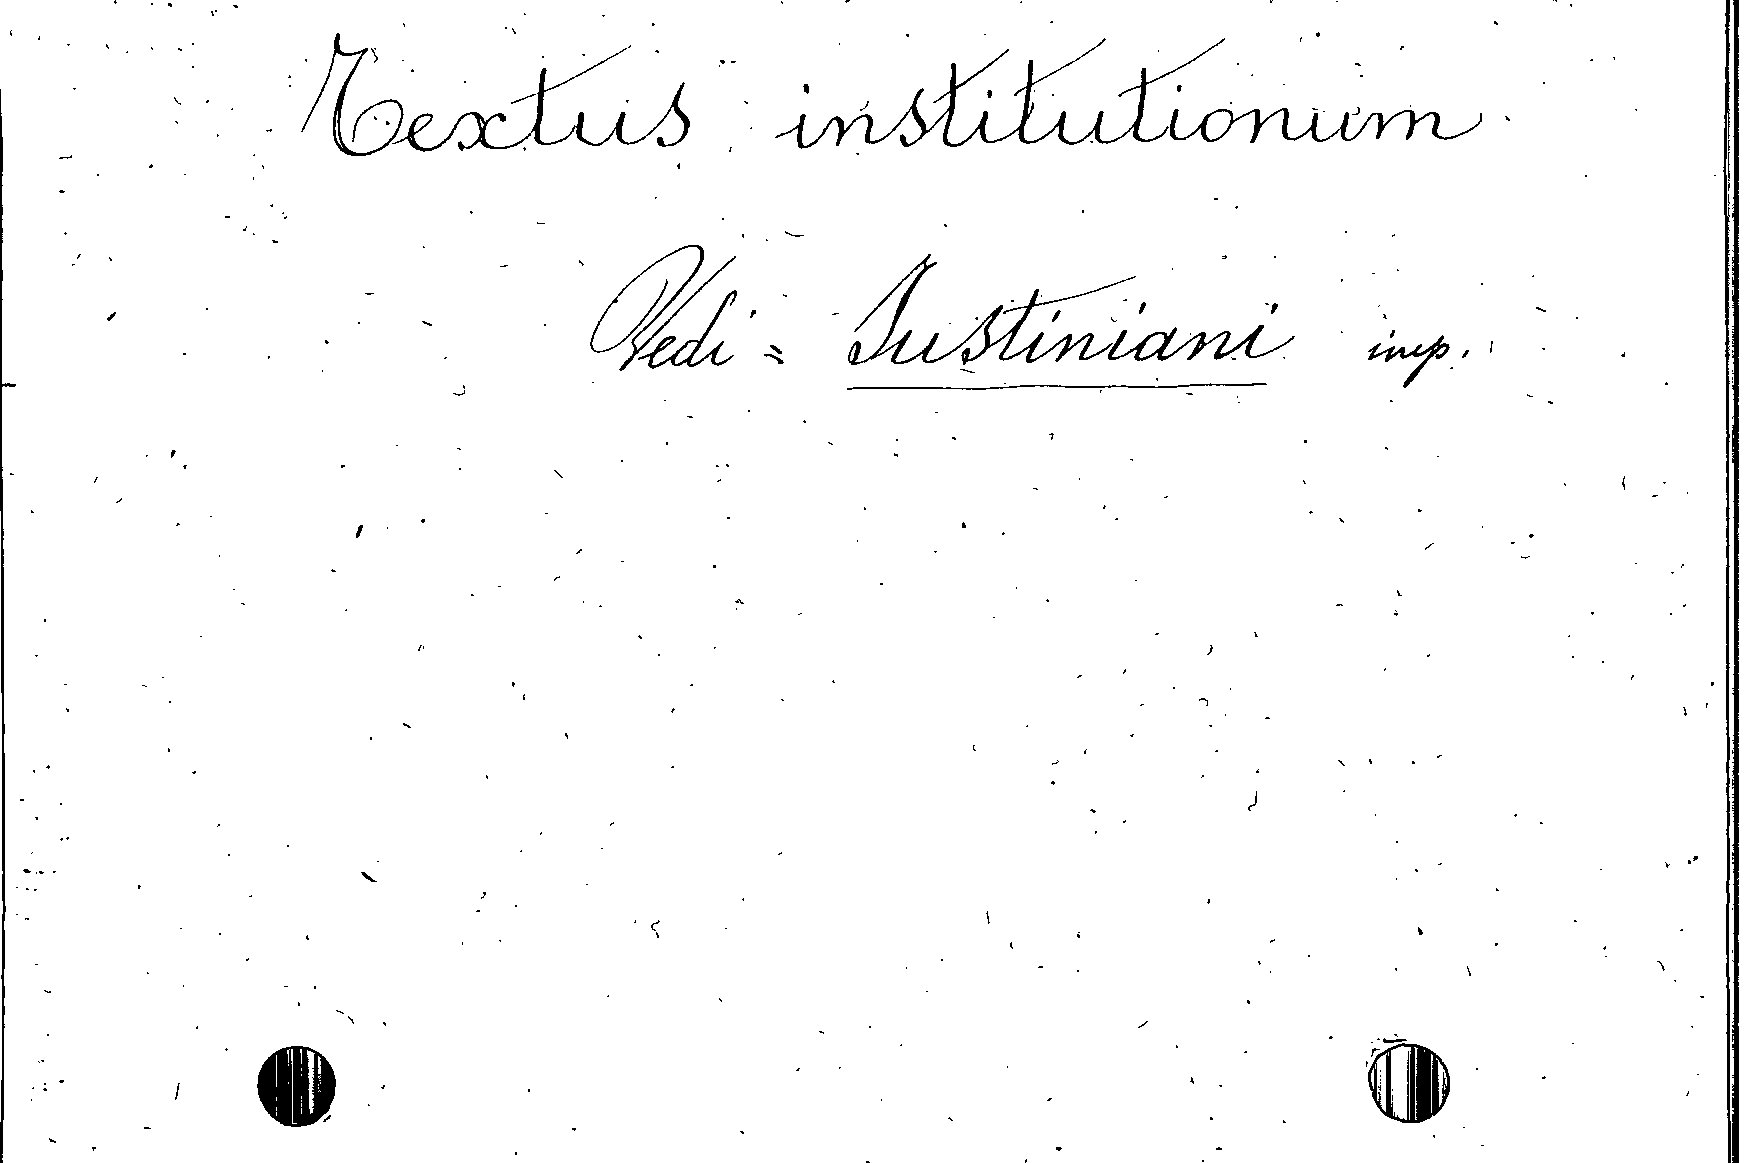 Textus institutionum
Vedi = Justiniani imp.